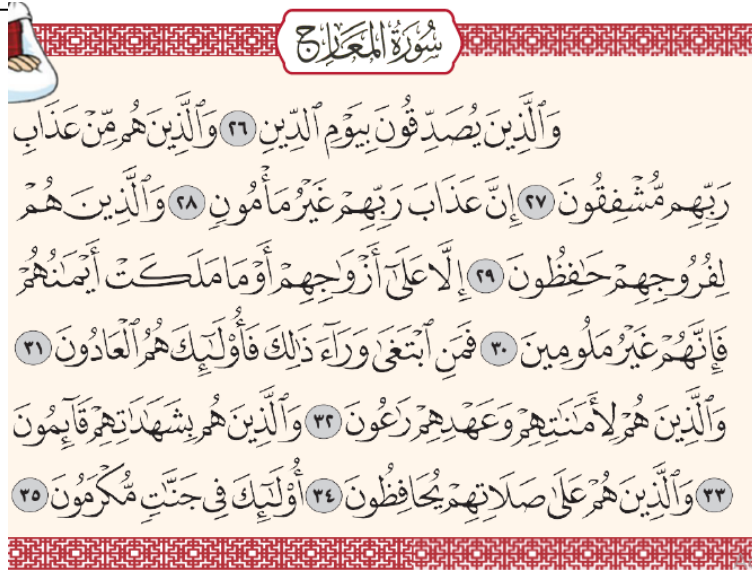 سُورَةُ المَعَارِجِ
وَٱلَّذِينَ يُصَدِّقُونَ بِيَوۡمِ ٱلدِّينِ ٢٦ وَٱلَّذِينَ هُم مِّنۡ عَذَابِ
رَبِّهِم مُّشۡفِقُونَ ٢٧ إِنَّ عَذَابَ رَبِّهِمۡ غَيۡرُ مَأۡمُونٖ ٢٨ وَٱلَّذِينَ هُمۡ
لِفُرُوجِهِمۡ حَٰفِظُونَ ٢٩ إِلَّا عَلَىٰٓ أَزۡوَٰجِهِمۡ أَوۡ مَا مَلَكَتۡ أَيۡمَٰنُهُمۡ
فَإِنَّهُمۡ غَيۡرُ مَلُومِينَ ٣٠ فَمَنِ ٱبۡتَغَىٰ وَرَآءَ ذَٰلِكَ فَأُوْلَٰٓئِكَ هُمُ ٱلۡعَادُونَ ٣١
وَٱلَّذِينَ هُمۡ لِأَمَٰنَٰتِهِمۡ وَعَهۡدِهِمۡ رَٰعُونَ ٣٢ وَٱلَّذِينَ هُم بِشَهَٰدَٰتِهِمۡ قَآئِمُونَ
٣٣ وَٱلَّذِينَ هُمۡ عَلَىٰ صَلَاتِهِمۡ يُحَافِظُونَ ٣٤ أُوْلَٰٓئِكَ فِي جَنَّٰتٖ مُّكۡرَمُونَ ٣٥